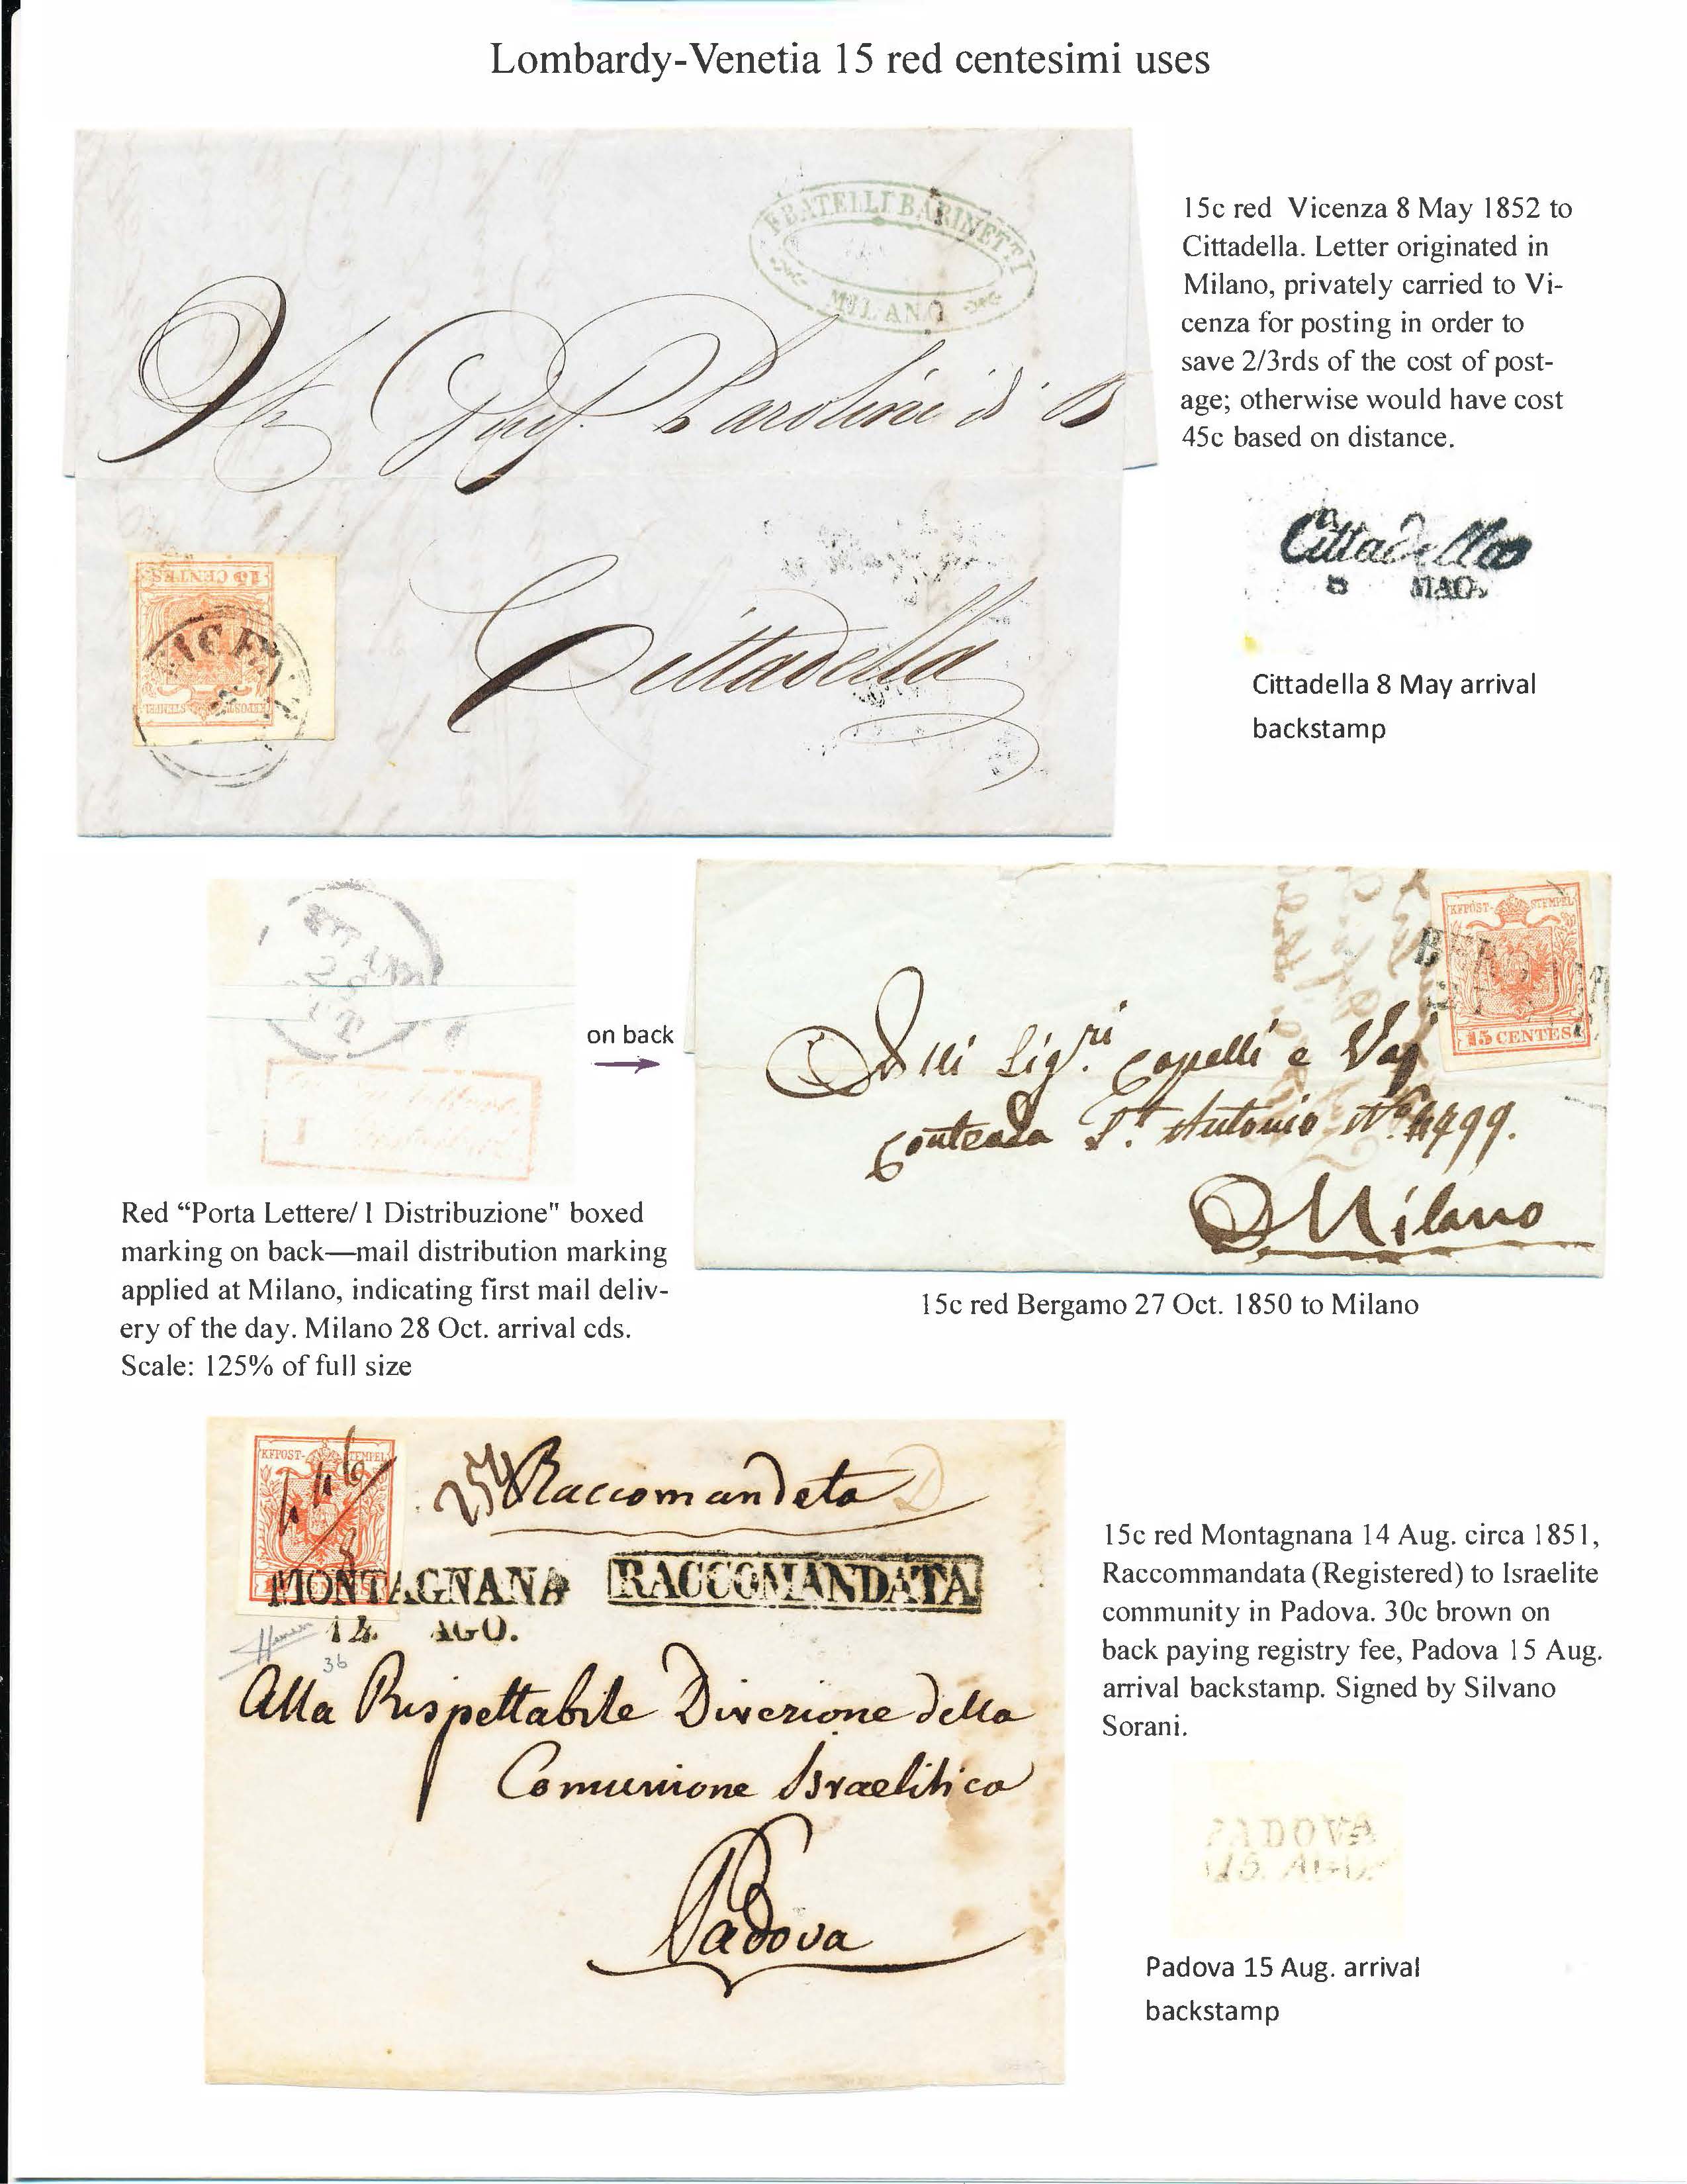 Lombardy-Venetia 15 red centesimi uses
FRATELLI BARINETTI
MILANO
Cittadella
15 CENTES
KFPOST- STEMPEL
15c red Vicenza 8 May 1852 to
Cittadella. Letter originated in
Milano, privately carried to Vi-
cenza for posting in order to
save 2/3rds of the cost of post-
age; otherwise would have cost
45c based on distance.
Cittadella
8 MAG.
Cittadella 8 May arrival
backstamp
on back
Red “Porta Lettere/ I Distribuzione" boxed
marking on back—mail distribution marking
applied at Milano, indicating first mail deliv-
ery of the day. Milano 28 Oct. arrival cds.
Scale: 125% of full size
KFPOST- STEMPEL
15 CENTES
Alli Sigri Capelli e
Contrada St Antonio No. 4799.
Milano
15c red Bergamo 27 Oct. 1850 to Milano
KFPOST- STEMPEL
254 Raccomandata
MONTAGNANA
14. AGO.
RACCOMANDATA
36
Alla Rispettabile Direzione della
Comunione Israelitica
Padova
15c red Montagnana 14 Aug. circa 1851,
Raccommandata (Registered) to Israelite
community in Padova. 30c brown on
back paying registry fee, Padova 15 Aug.
arrival backstamp. Signed by Silvano
Sorani.
PADOVA
15. AGO.
Padova 15 Aug. arrival
backstamp